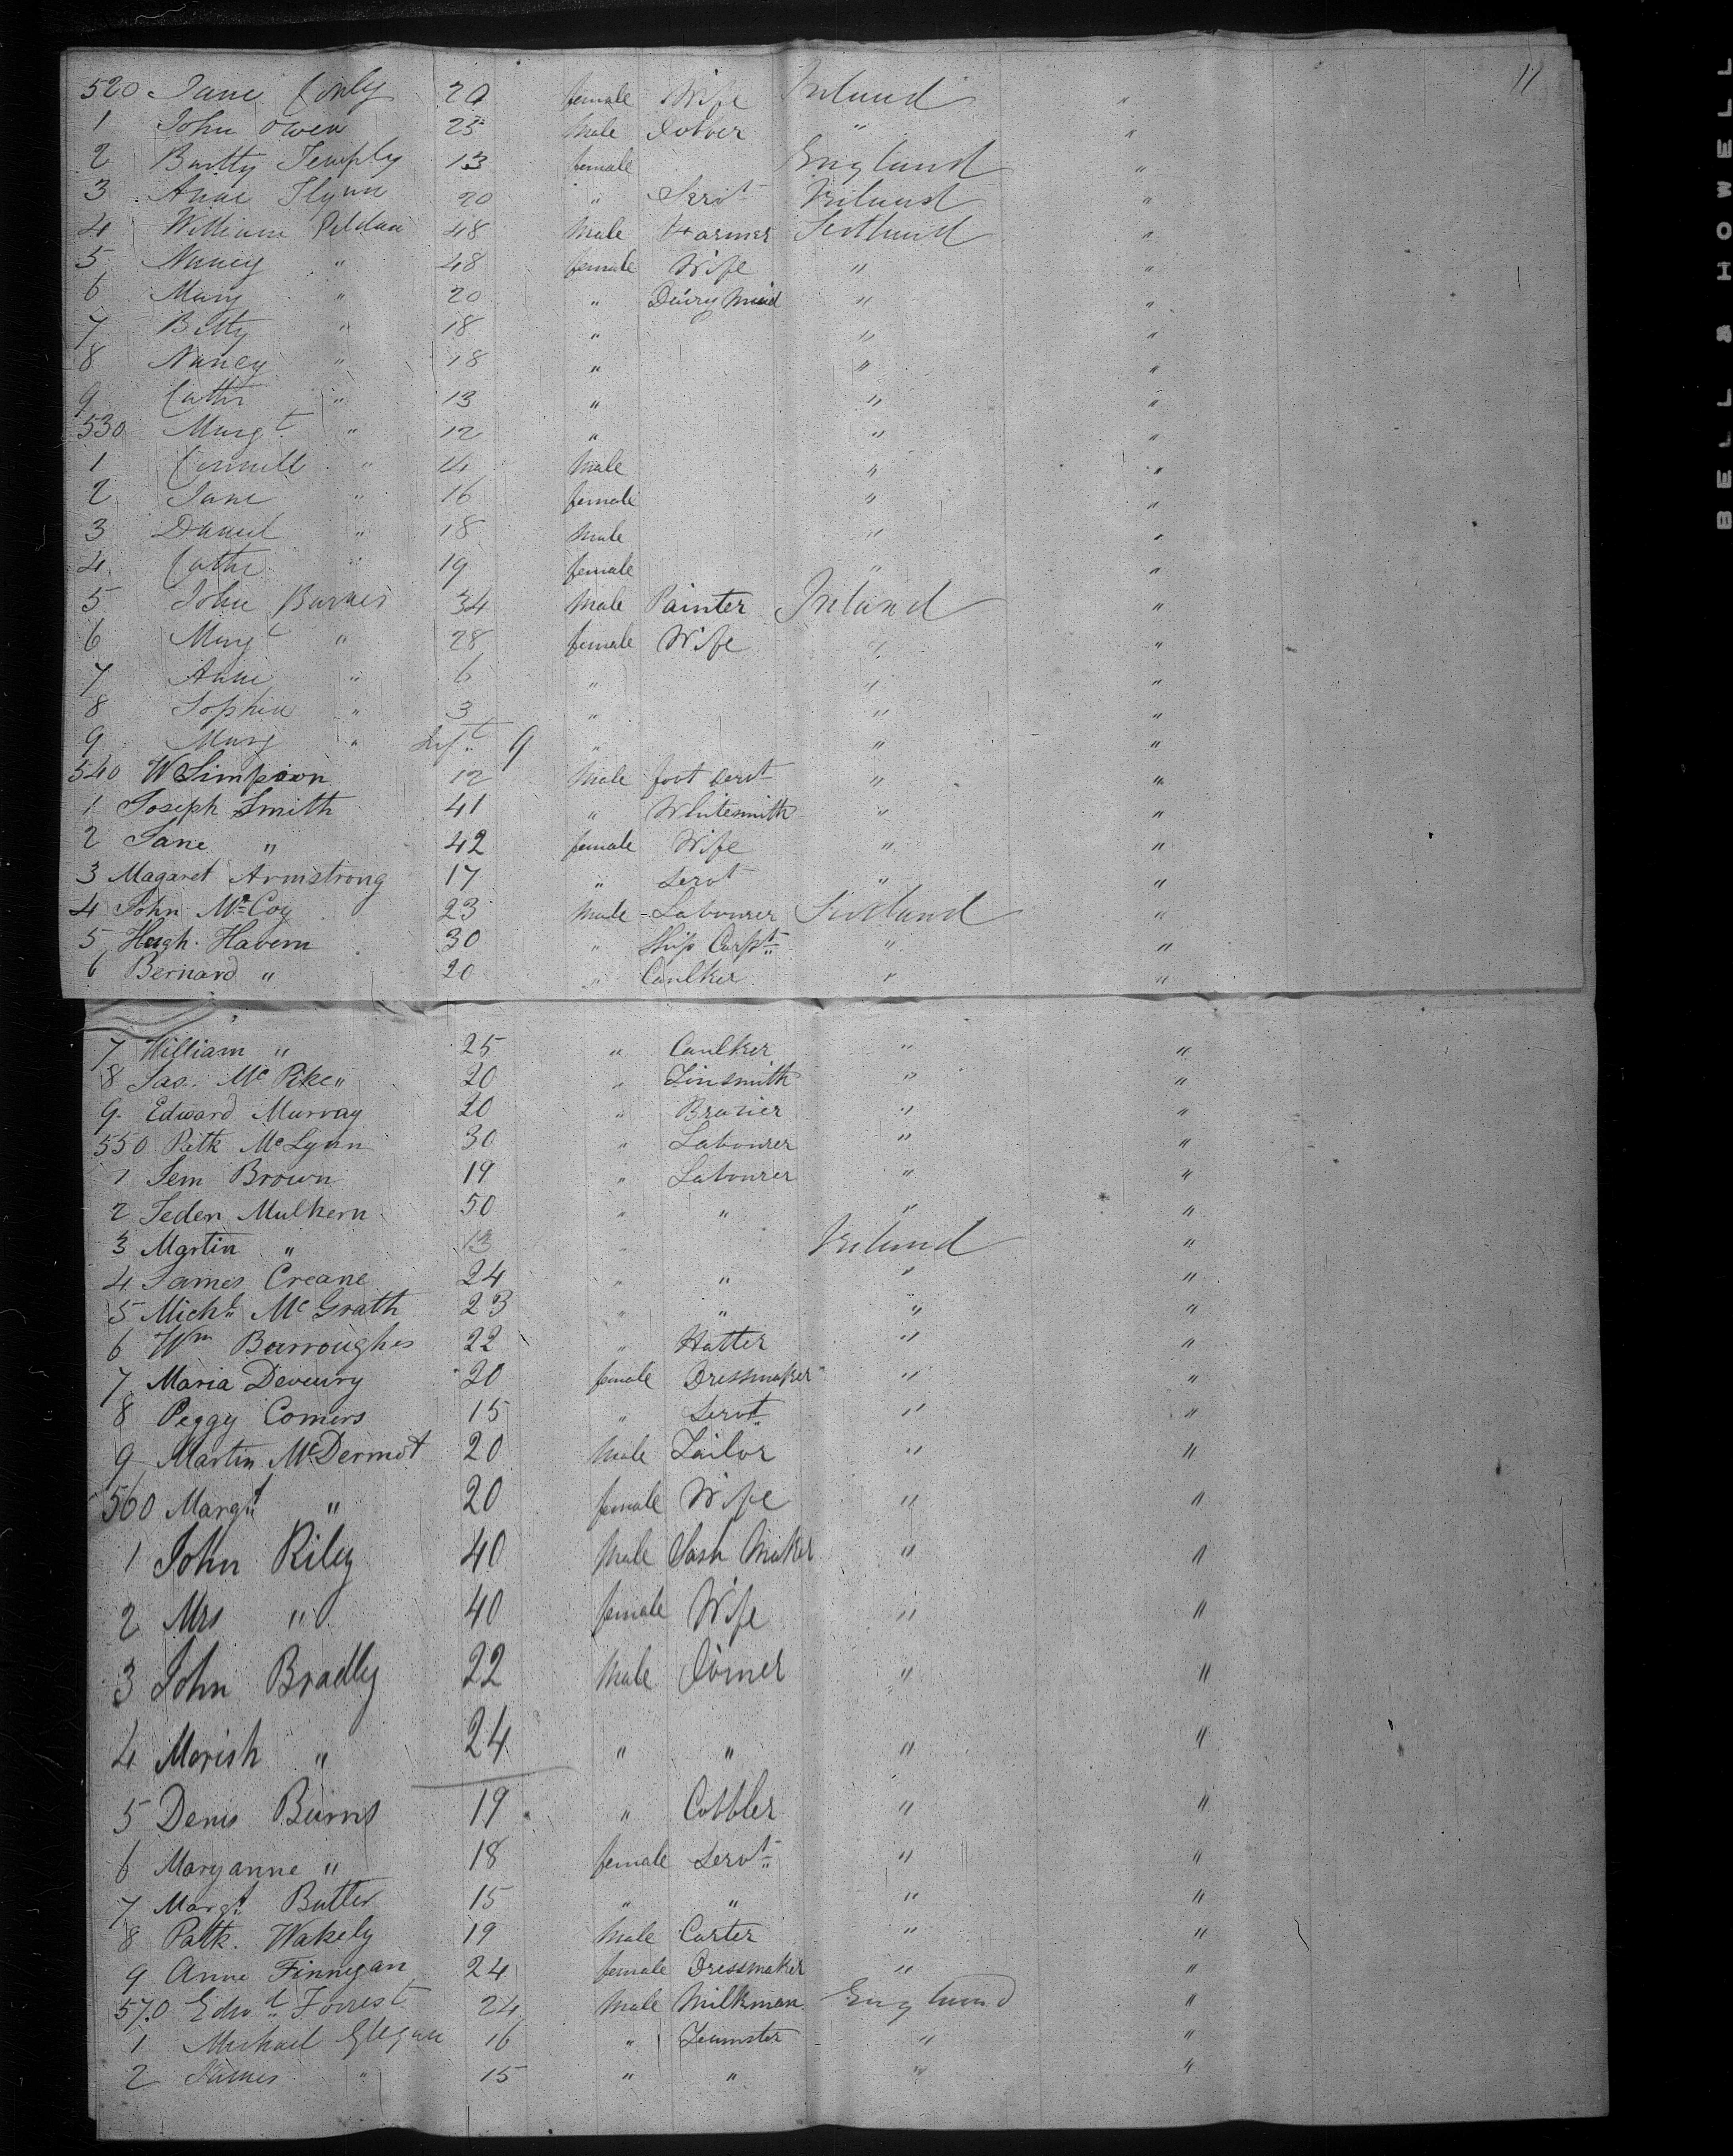 11
520 Jane Conly 20 female Wife Ireland "
1 John Owen 25 Male "  "
2 Bartty Temply 13 female England "
3 Anne Flynn 20 " Servt Ireland "
4 William 48 Male Farmer Scotland "
5 Nancy " 48 female Wife " "
6 Mary " 20 " Dairy Maid " "
7 Betty " 18 " " "
8 Nancy " 18 " " "
9 Cathr " 13 " " "
530 Margt " 12 " " "
1 " 14 Male " "
2 Jane " 16 female " "
3 Daniel " 18 Male " "
4 Cathr " 19 female " "
5 John Barnes 34 Male Painter Ireland "
6 Margt " 28 female Wife " "
7 Anne " 6 " " "
8 Sophia " 3 " " "
9 Mary " Inft 9 " " "
540 W Simpson 12 Male foot Servt " "
1 Joseph Smith 41 " Whitesmith " "
2 Jane " 42 female Wife " "
3 Magaret Armstrong 17 " Servt " "
4 John McCoy 23 Male Labourer Scotland "
5 Hugh Havern 30 " Ship Carpt " "
6 Bernard " 20 " Caulker " "
7 William " 25 " Caulker " "
8 Jas. McPike " 20 " Tinsmith " "
9 Edward Murray 20 " Brazier " "
550 Patk McLynn 30 " Labourer " "
1 Jem Brown 19 " Labourer " "
2 Mulhern 50 " " " "
3 Martin " 13 " Ireland "
4 James Creane 24 " " " "
5 Michl McGrath 23 " " " "
6 Wm Burroughes 22 " Hatter " "
7 Maria Deveury 20 female Dressmaker " "
8 Peggy Comers 15 " Servt " "
9 Martin McDermot 20 Male Tailor " "
560 Margt " 20 female Wife " "
1 John Riley 40 Male Sash Maker " "
2 Mrs " 40 female Wife " "
3 John Bradly 22 Male Joiner " "
4 Morish " 24 " " " "
5 Denis Burns 19 " Cobbler " "
6 Maryanne " 18 female Servt " "
7 Margt Butler 15 " " " "
8 Patk. Wakely 19 Male Carter " "
9 Anne Finnegan 24 female Dressmaker " "
570 Edwd Forrest 24 Male Milkman England "
1 Michael 16 " Teamster " "
2 James " 15 " " " "
BELL & HOWELL